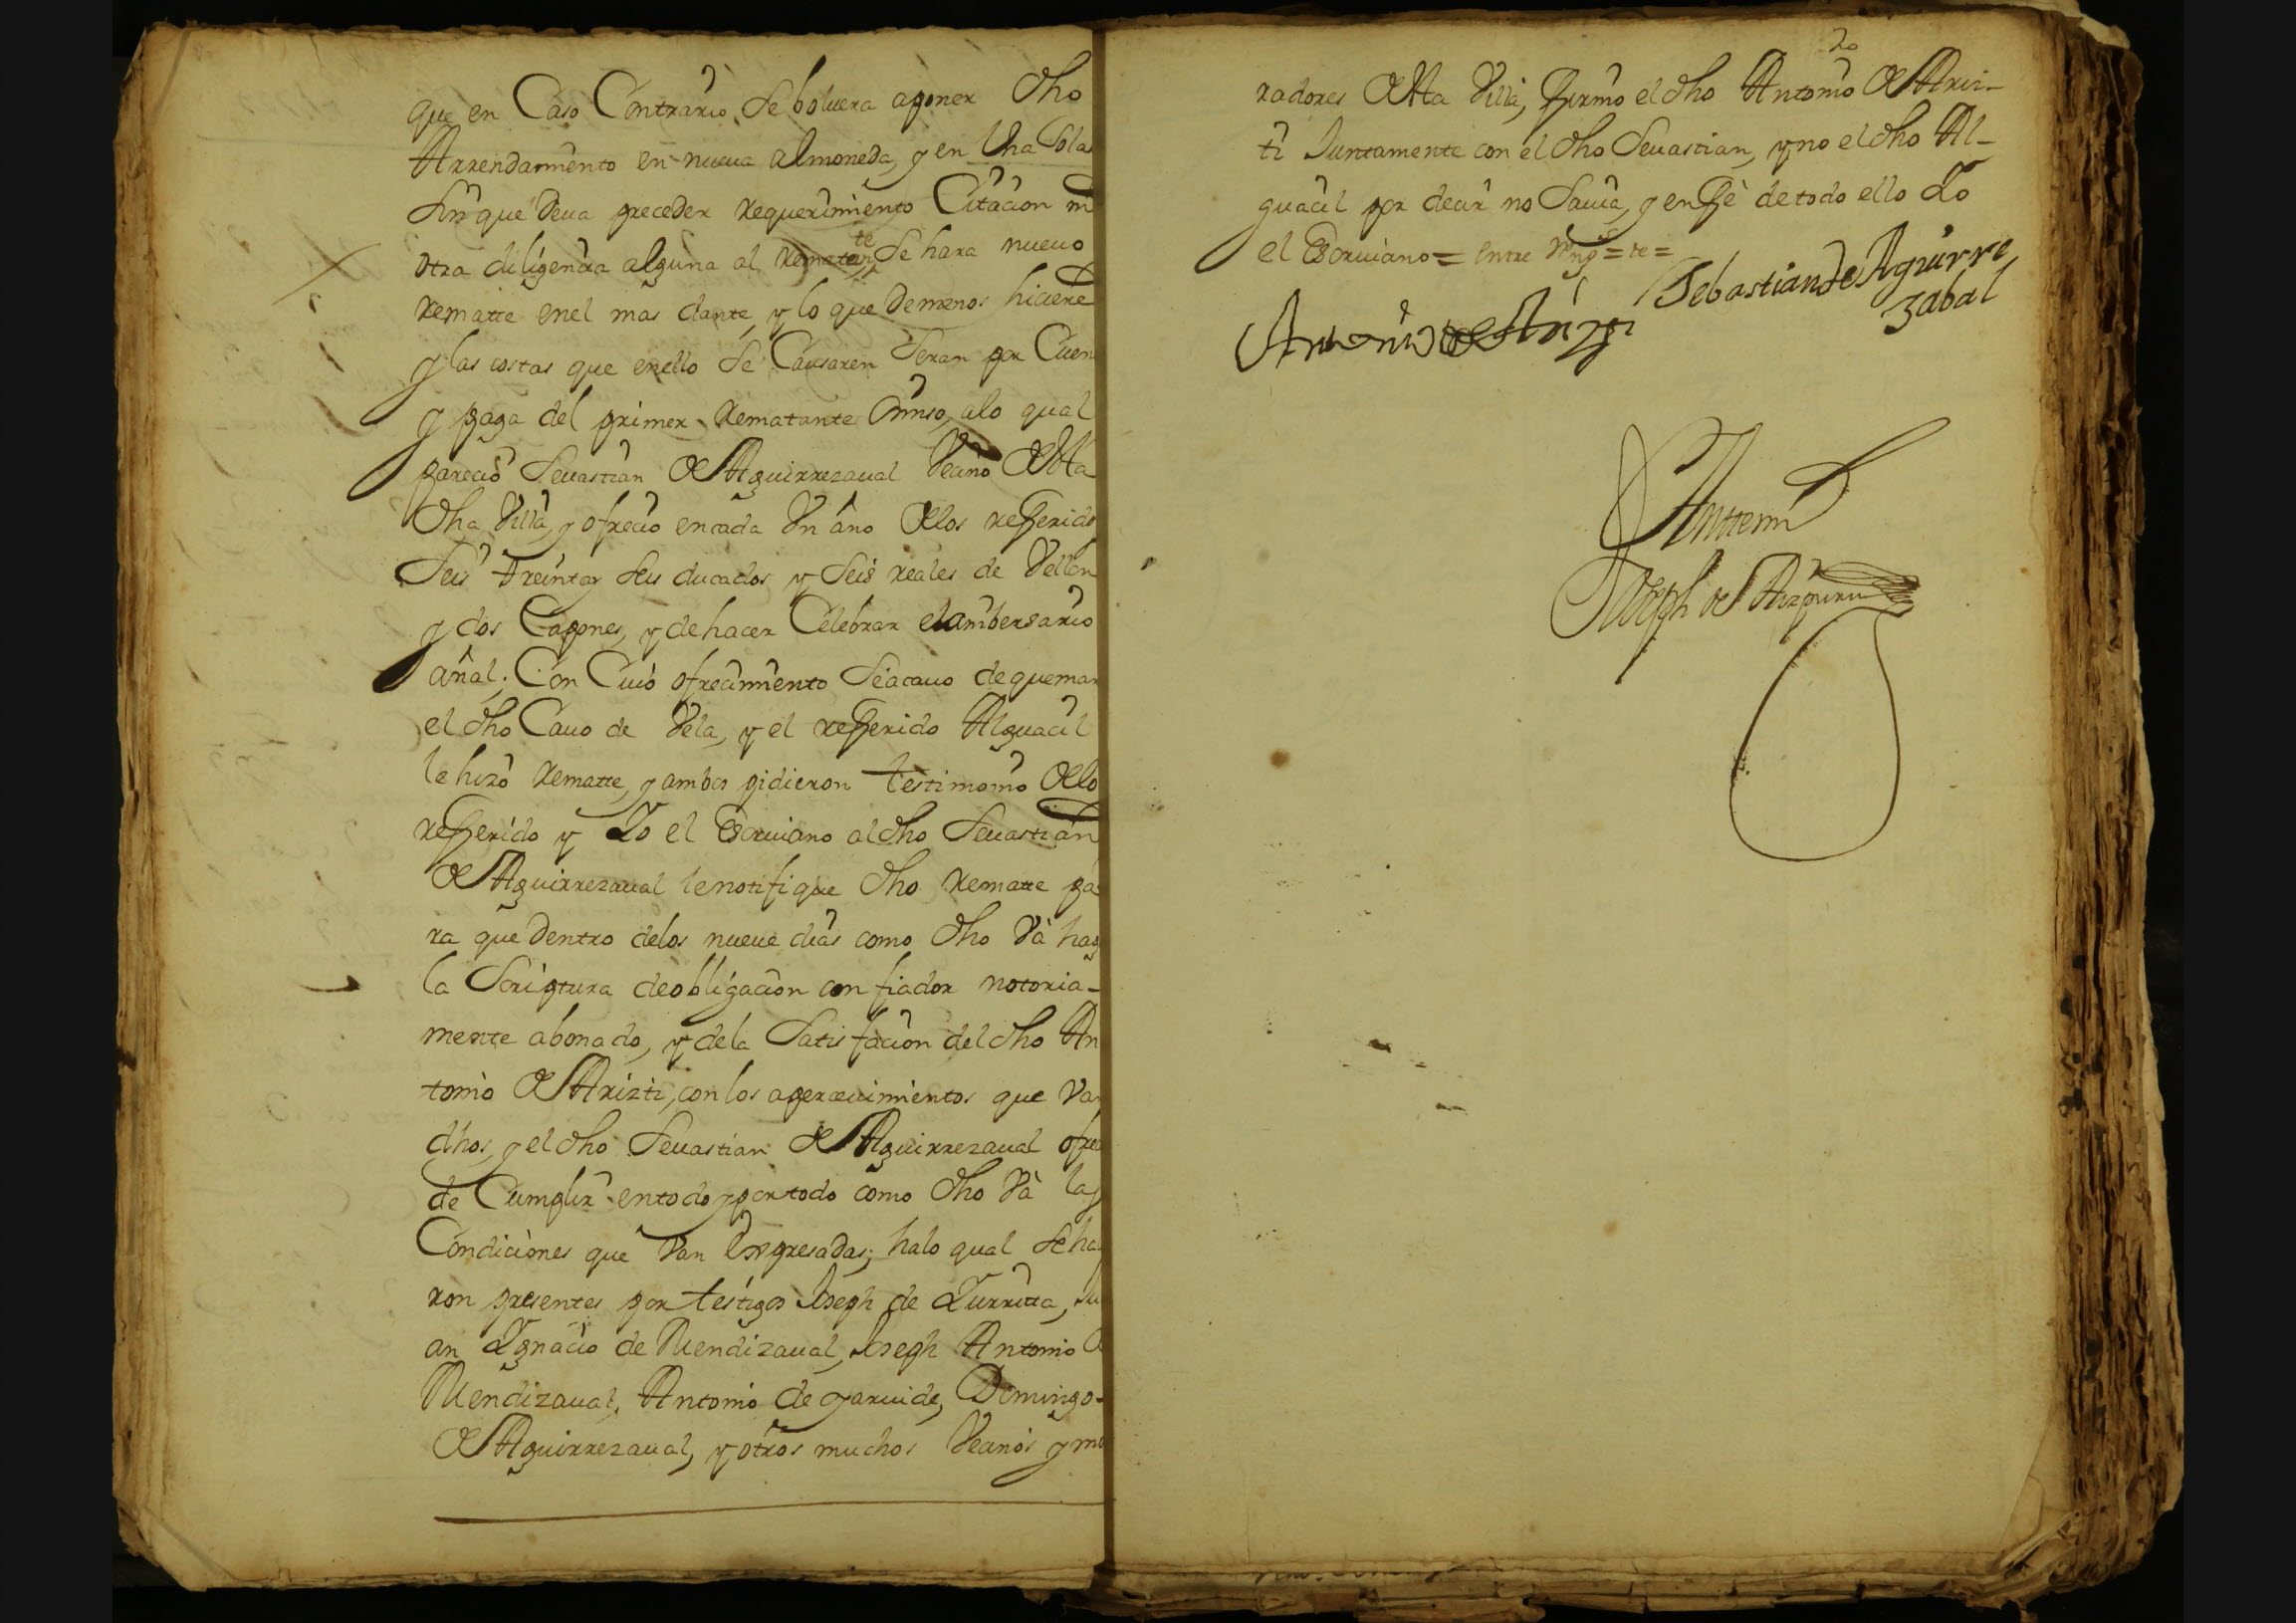 que en Caso Contrario, se boluera aponer dho
Arrendamiento en nueua almoneda, y en Vna sola
sin que deua preceder requerimiento Citacion ni
otra diligencia alguna al rematante se hara nueuo
rematte enel mas dante, y lo que de menos hiciere
y las costas que enello se Causaren seran por Cuen
y paga del primer rematante omiso, alo qual
parecio Seuastian de Aguirrezaual Vecino desta
dha Villa, y ofrecio encada Vn año delos referido
seis treinta y seis ducados y seis reales de Vellon
y dos Capones, y de hacer Celebrar el anibersario
añal; Con Cuio ofrecimiento se acauo de quemar
el dho Cauo de Vela, y el referido Alguacil
le hizo rematte, y ambos pidieron testimonio delo
referido y Yo el Escriuano al dho Seuastian
de Aguirrezaual le notifique dho rematte pa
ra que dentro delos nueue dias como dho Và hag
la Scriptura de obligacion con fiador notoria-
mente abonado, y dela Satisfacion del dho An
tonio de Arizti, con los aperceuimientos que Va
dhos, y el dho Seuastian de Aguirrezaual ofrec
de Cumplir entodo y portodo como dho Và las
Condiciones que Van Expresadas; halo qual se ha
ron presentes por testigos Joseph de Yurritta, Ju
an Ygnacio de Mendizaual, Joseph Antonio
Mendizaual, Antonio de garuide, Domingo-
de Aguirrezaual, y otros muchos Vecinos y mo
20
radores desta Villa, firmo el dho Antonio de Ariz-
ti Juntamente con el dho Seuastian, y no el dho Al-
guacil por decir no Sauia, y en fè de todo ello Yo
el Escriuano = entre Rengs = te =
Sebastian de Aguirre
zabal
Antonio de Arizti
Antemi
Joseph de Aizpuru